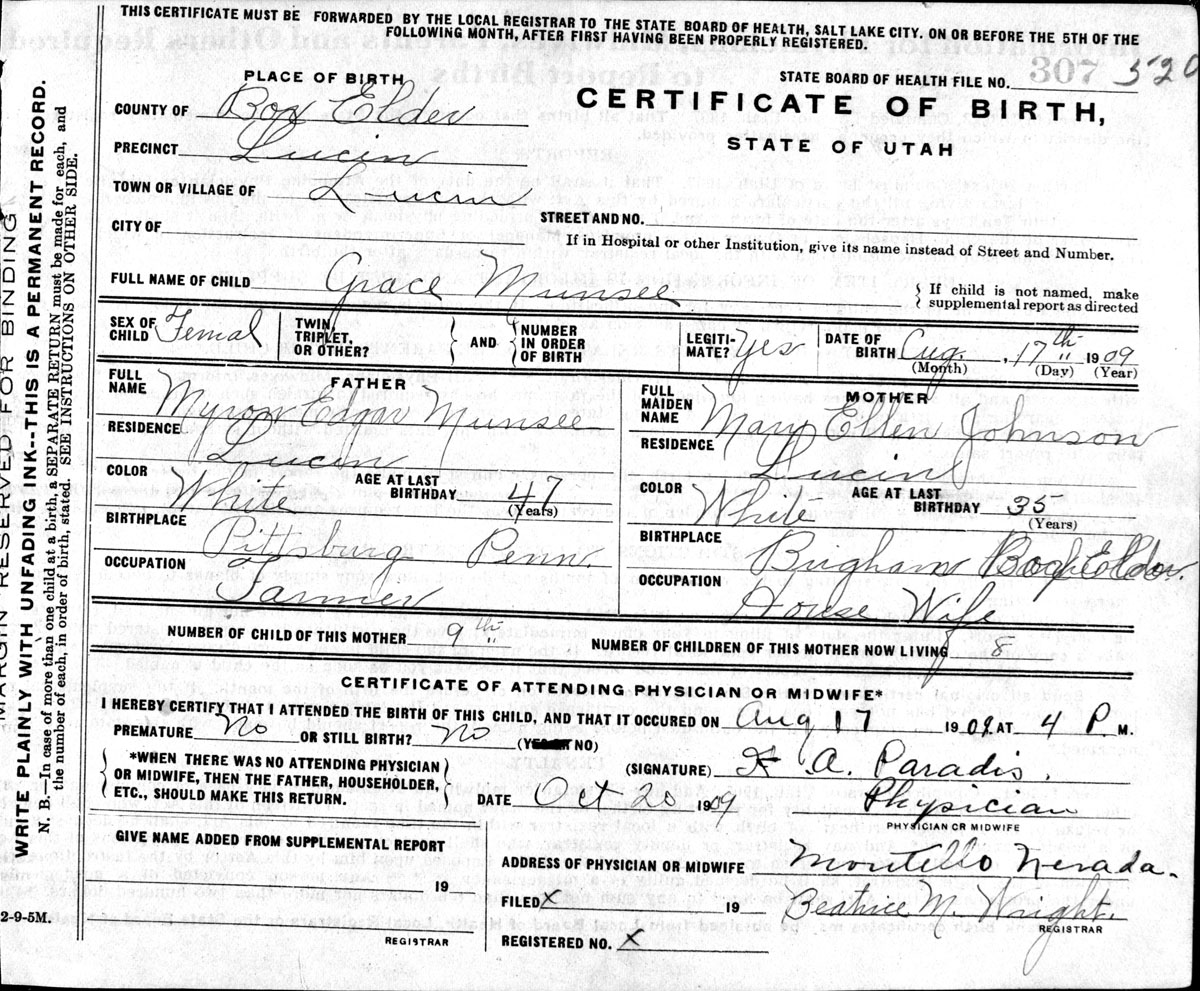 THIS CERTIFICATE MUST BE FORWARDED BY THE LOCAL REGISTRAR TO THE STATE BOARD OF HEALTH, SALT LAKE CITY, ON OR BEFORE THE 5TH OF THE
FOLLOWING MONTH, AFTER FIRST HAVING BEEN PROPERLY REGISTERED.
STATE BOARD OF HEALTH FILE NO. 307 520
PLACE OF BIRTH
CERTIFICATE OF BIRTH,
STATE OF UTAH
COUNTY OF Box Elder
PRECINCT Lucin
TOWN OR VILLAGE OF Lucin
STREET AND NO.
CITY OF
If in Hospital or other Institution, give its name instead of Street and Number.
FULL NAME OF CHILD Grace Munsee
If child is not named, make
supplemental report as directed
SEX OF CHILD Femal
TWIN, TRIPLET, OR OTHER?
AND
NUMBER IN ORDER OF BIRTH
LEGITI-MATE? Yes
DATE OF BIRTH Aug. 17th 1909
(Month) (Day) (Year)
FATHER
FULL NAME Myron Edgar Munsee
RESIDENCE Lucin
COLOR White
AGE AT LAST BIRTHDAY 47
(Years)
BIRTHPLACE Pittsburg Penn.
OCCUPATION Farmer
MOTHER
FULL MAIDEN NAME Mary Ellen Johnson
RESIDENCE Lucin
COLOR White
AGE AT LAST BIRTHDAY 35
(Years)
BIRTHPLACE Brigham Box Elder
OCCUPATION House Wife
NUMBER OF CHILD OF THIS MOTHER 9th
NUMBER OF CHILDREN OF THIS MOTHER NOW LIVING 8
CERTIFICATE OF ATTENDING PHYSICIAN OR MIDWIFE*
I HEREBY CERTIFY THAT I ATTENDED THE BIRTH OF THIS CHILD, AND THAT IT OCCURED ON Aug 17 1909 AT 4 P. M.
PREMATURE No OR STILL BIRTH? No (YES OR NO)
*WHEN THERE WAS NO ATTENDING PHYSICIAN
OR MIDWIFE, THEN THE FATHER, HOUSEHOLDER,
ETC., SHOULD MAKE THIS RETURN.
(SIGNATURE) A. Paradis.
DATE Oct 20 1909 Physician
PHYSICIAN OR MIDWIFE
GIVE NAME ADDED FROM SUPPLEMENTAL REPORT
19
REGISTRAR
ADDRESS OF PHYSICIAN OR MIDWIFE Montello Nevada.
FILED X 19 Beatrice M. Wright
REGISTRAR
REGISTERED NO. X
MARGIN RESERVED FOR BINDING
WRITE PLAINLY WITH UNFADING INK--THIS IS A PERMANENT RECORD.
N. B.—In case of more than one child at a birth, a SEPARATE RETURN must be made for each, and
the number of each, in order of birth, stated. SEE INSTRUCTIONS ON OTHER SIDE.
2-9-5M.